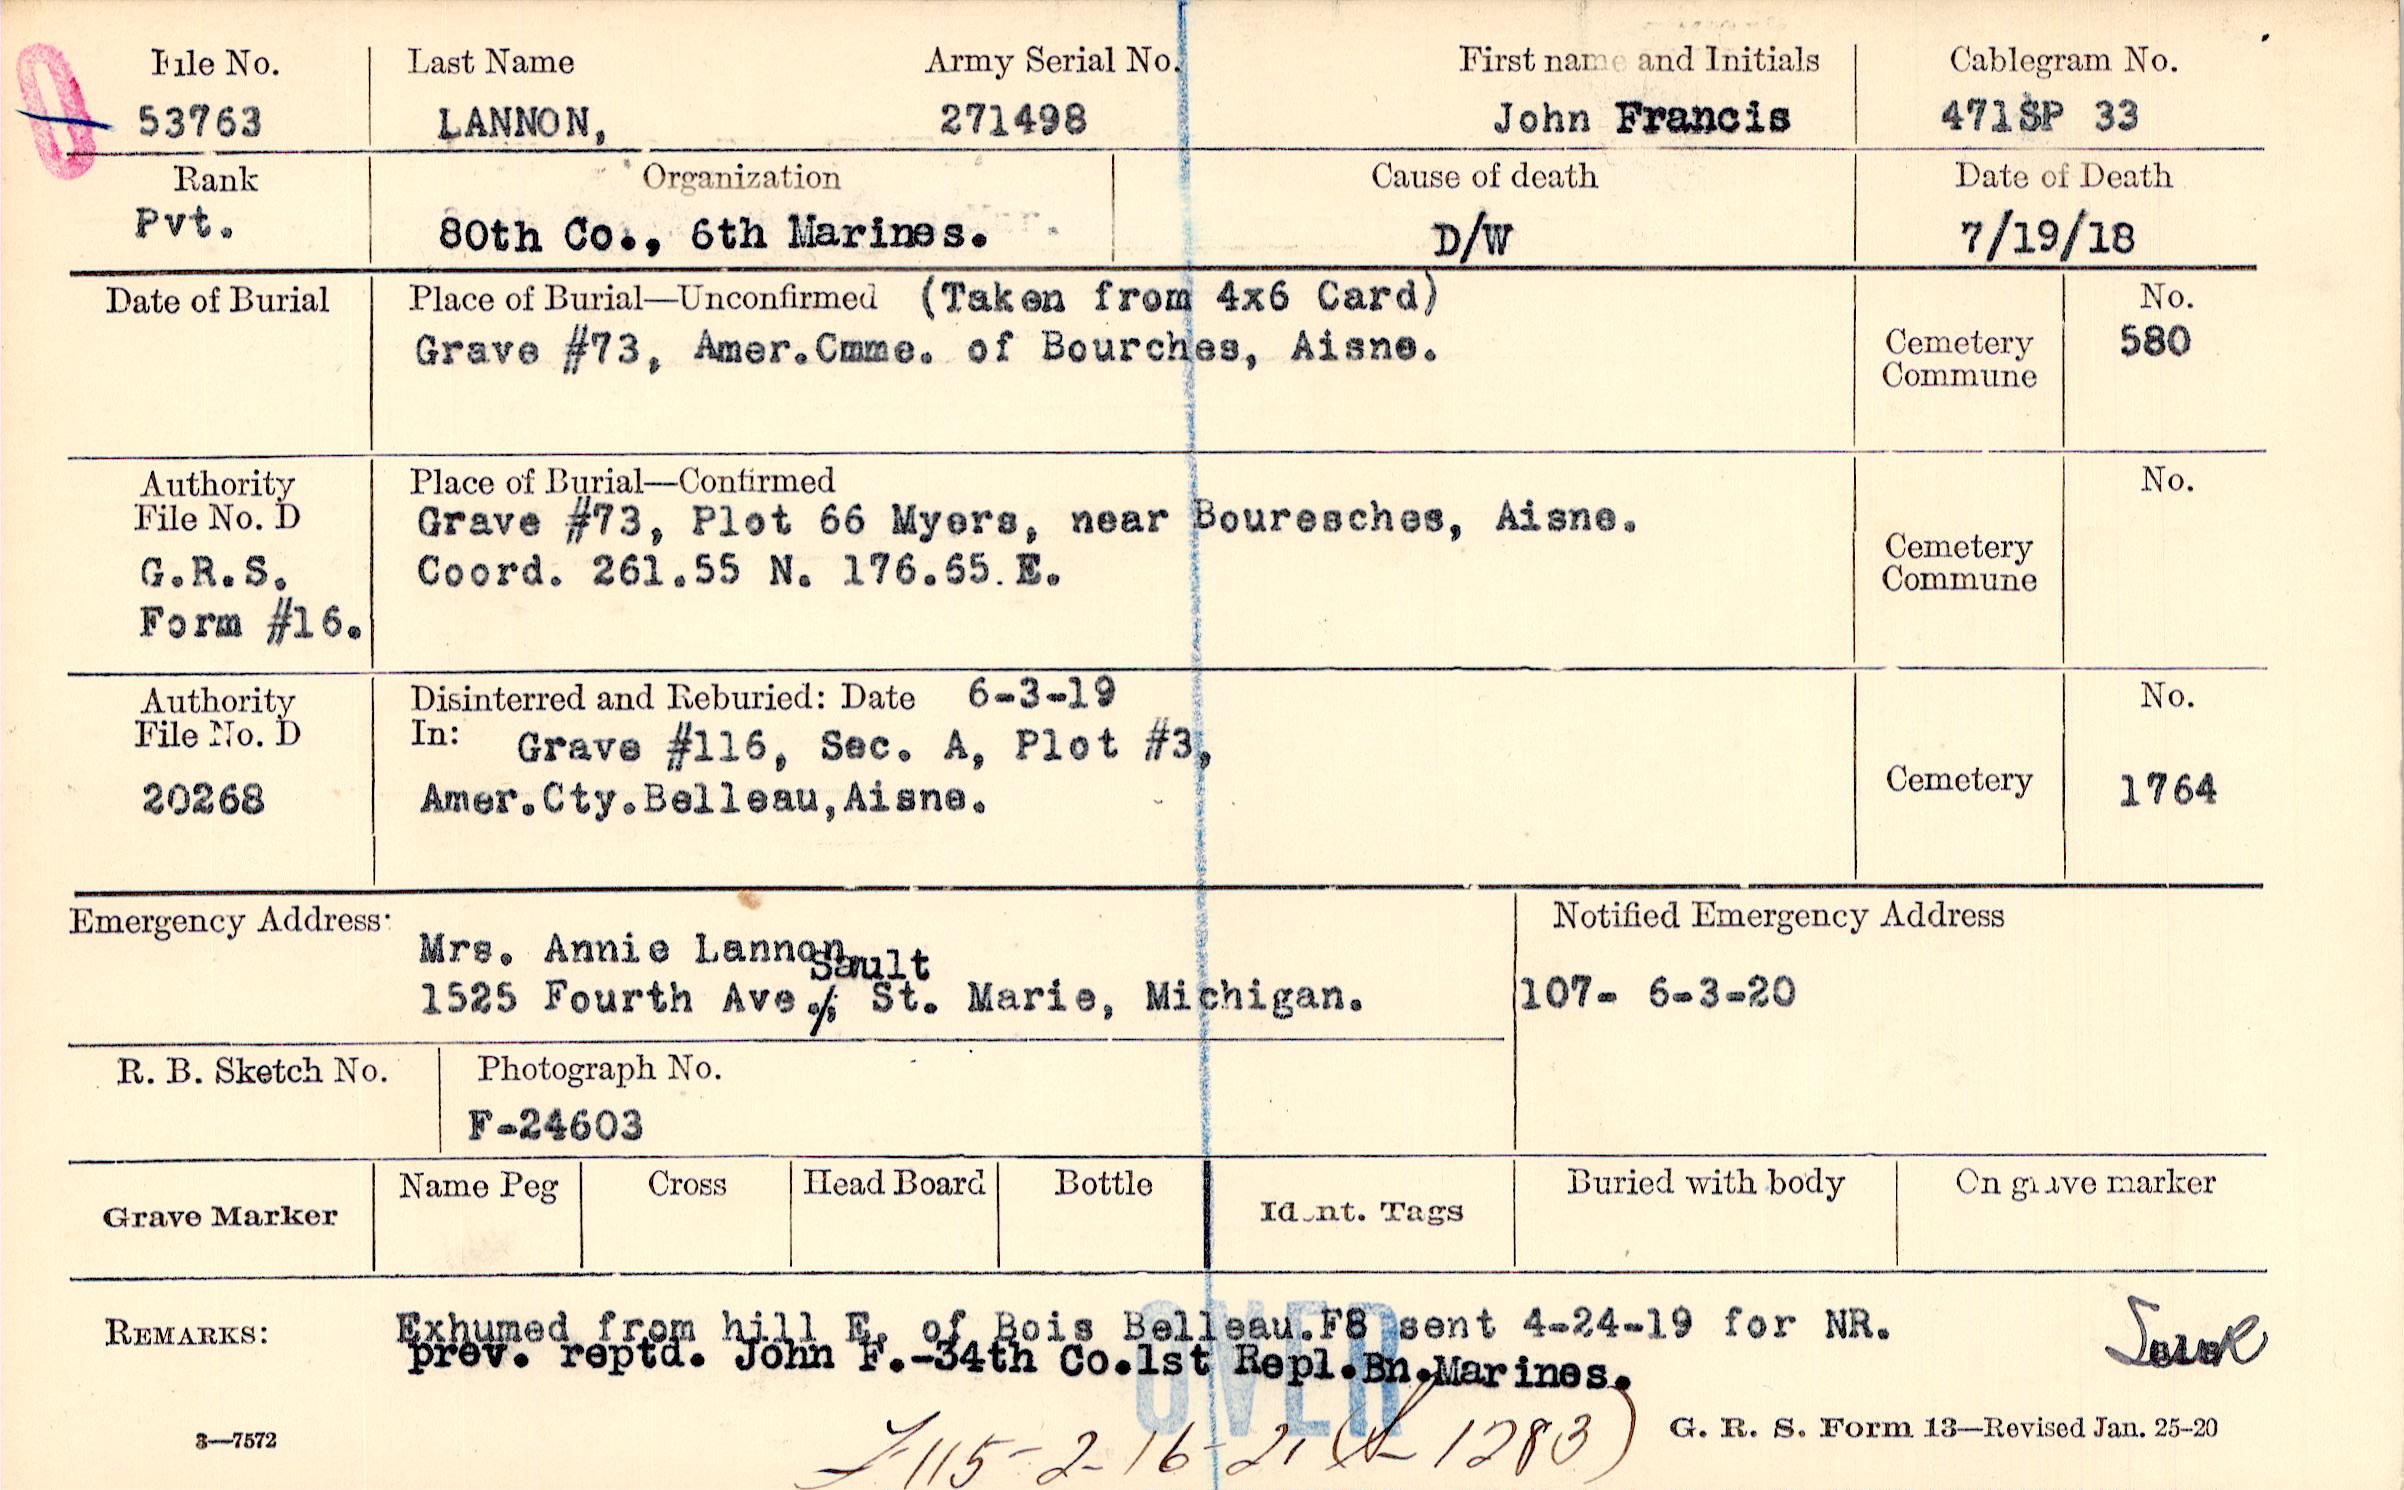 File No. Last Name Army Serial No. First name and Initials Cablegram No.
53763 LANNON, 271498 John Francis 471SP 33
Rank Organization Cause of death Date of Death
Pvt. 80th Co., 6th Marines. D/W 7/19/18
Date of Burial Place of Burial—Unconfirmed (Taken from 4x6 Card) No.
Grave #73, Amer.Cmme. of Bourches, Aisne. Cemetery 580
Commune
Authority Place of Burial—Confirmed No.
File No. D Grave #73, Plot 66 Myers, near Bouresches, Aisne.
G.R.S. Coord. 261.55 N. 176.65.E. Cemetery
Commune
Form #16.
Authority Disinterred and Reburied: Date 6-3-19 No.
File No. D In: Grave #116, Sec. A, Plot #3,
20268 Amer.Cty.Belleau,Aisne. Cemetery 1764
Emergency Address: Notified Emergency Address
Mrs. Annie Lannon
Sault
1525 Fourth Ave., St. Marie, Michigan. 107- 6-3-20
R. B. Sketch No. Photograph No.
F-24603
Grave Marker Name Peg Cross Head Board Bottle Ident. Tags Buried with body On grave marker
REMARKS: Exhumed from hill E. of Bois Belleau.F8 sent 4-24-19 for NR.
prev. reptd. John F.-34th Co.1st Repl.Bn.Marines.
OVER
115-2-16-21 1283)
3—7572 G. R. S. Form 13—Revised Jan. 25-20